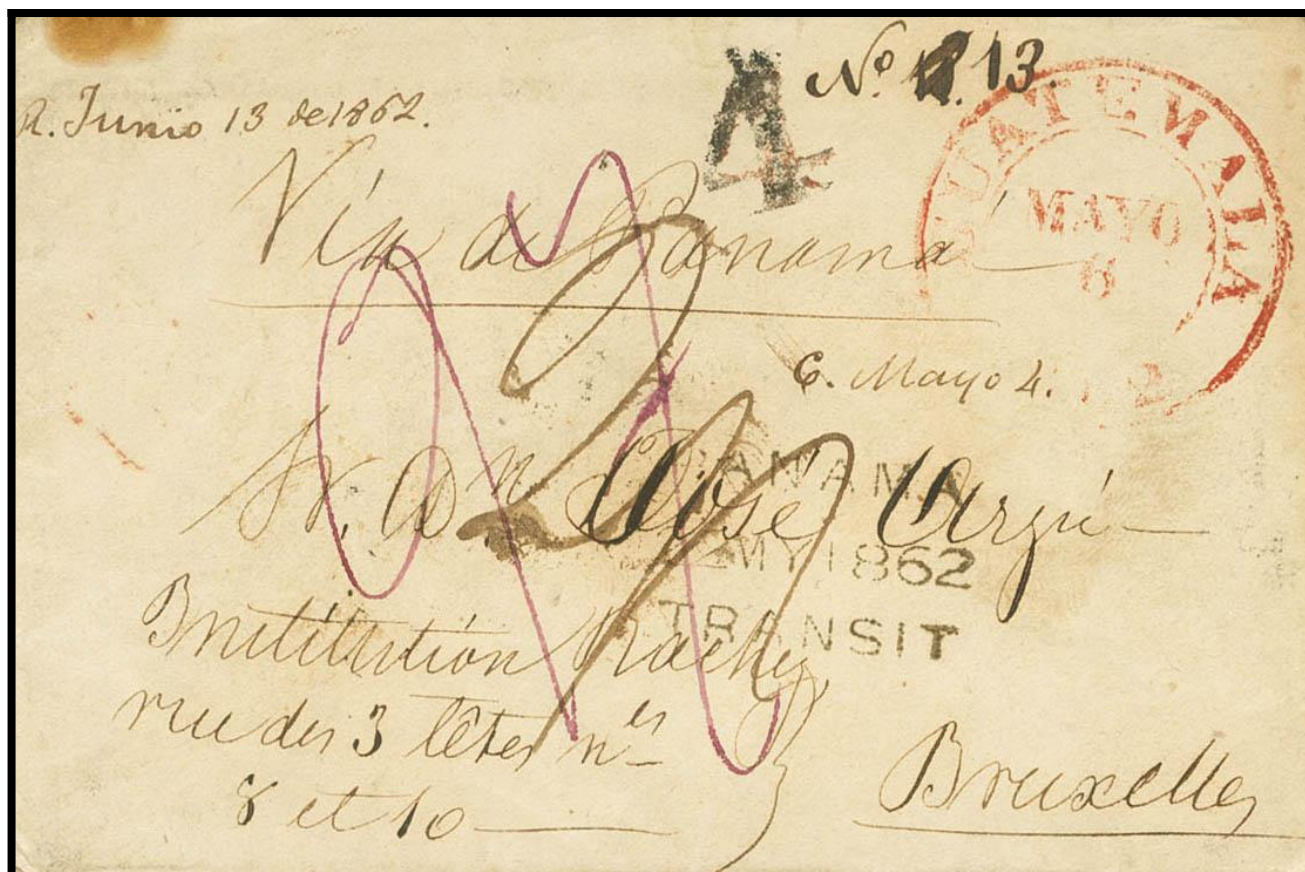 Nº 13.
R. Junio 13 de 1862.
4
GUATEMALA
MAYO
6
Vía de Panamá
C. Mayo 4.
Sr. Dn. José Arzú
PANAMA
MY 1862
TRANSIT
Institution Rachez
rue des 3 têtes nos
8 et 10
Bruxelles